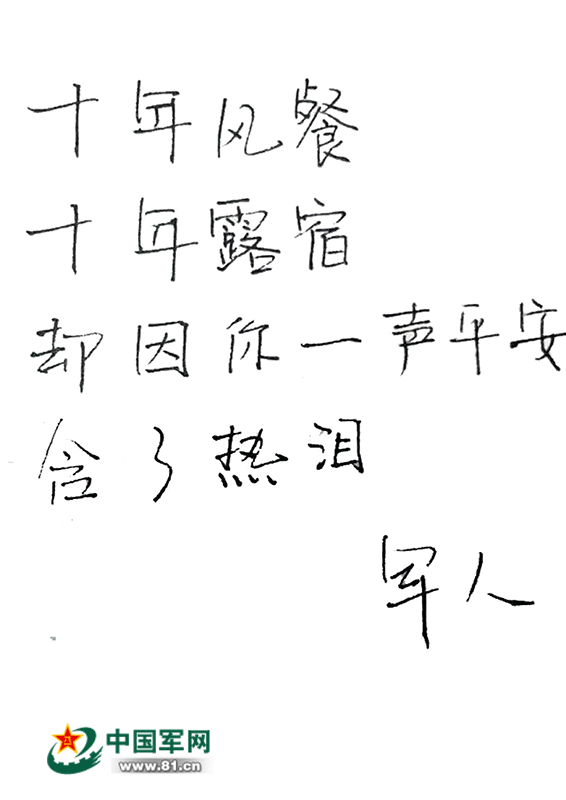 十年风餐
十年露宿
却因你一声平安
含了热泪
军人
中国军网
www.81.cn